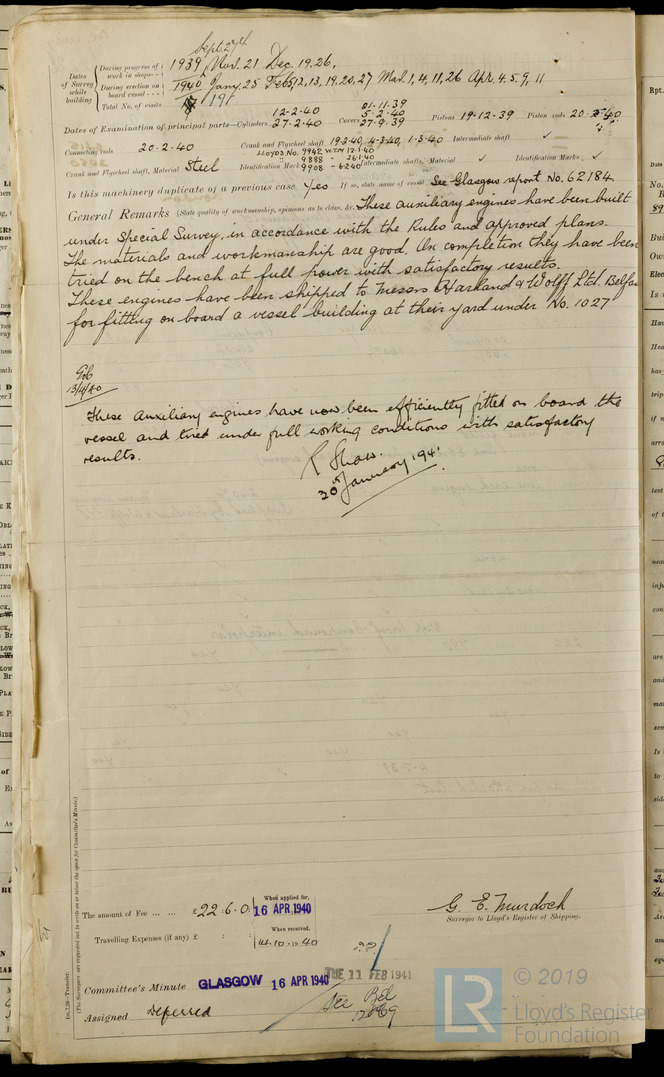 Sept. 27th
Dates of Survey while building
During progress of work in shops - - 1939 Nov. 21 Dec. 19, 26,
During erection on board vessel - - 1940 Jany. 25 Feb 5, 12, 13, 19, 20, 27 Mar. 1, 4, 11, 26 Apr. 4, 5, 9, 11
Total No. of visits 19†
Dates of Examination of principal parts—Cylinders 12-2-40 27-2-40 Covers 5-2-40 27-9-39 Pistons 19-12-39 Piston rods 20-2-40
Connecting rods 20-2-40 Crank and Flywheel shaft 19-3-40, 4-3-40, 1-3-40 Intermediate shaft ✓
Crank and Flywheel shaft, Material Steel Identification Mark LLOYDS No. 9942 W.T.M 12-1-40
9888 " 26-1-40
9908 - 6-2-40 Intermediate shafts, Material ✓ Identification Marks ✓
Is this machinery duplicate of a previous case Yes If so, state name of vessel See Glasgow report No. 62184.
General Remarks (State quality of workmanship, opinions as to class, &c. These auxiliary engines have been built
under Special Survey, in accordance with the Rules and approved plans.
The materials and workmanship are good. On completion they have been
tried on the bench at full power with satisfactory results.
These engines have been shipped to Messrs Harland & Wolff Ltd. Belfa
for fitting on board a vessel building at their yard under No. 1027
13/4/40
These Auxiliary engines have now been efficiently fitted on board the
vessel and tried under full working conditions with satisfactory
results.
R Shaw.
30th January 194
The amount of Fee ... ... £22 : 6 : 0
When applied for, 16 APR 1940
Travelling Expenses (if any) £ :
When received, 14.10.1940
G. E. Murdoch
Surveyor to Lloyd's Register of Shipping.
Committee's Minute GLASGOW 16 APR 1940
TUE 11 FEB 1941
Assigned Deferred
See Bel
12069
(The Surveyors are requested not to write on or below the space for Committee's Minute.)
© 2019
LR
Lloyd's Register
Foundation
Rpt.